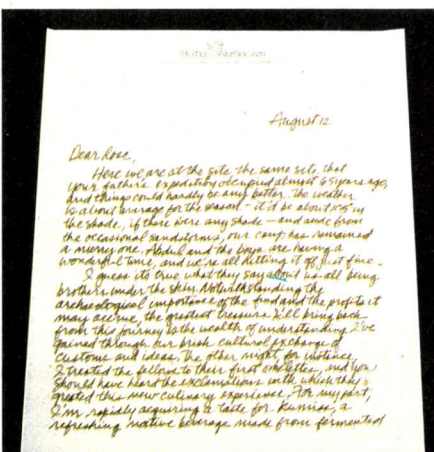 HOTEL
August 12
Dear Rose,
Here we are at the site, the same site that
your father's expedition occupied almost 65 years ago,
and things could hardly be any better. The weather
is about average for the season – it'd be about 115° in
the shade, if there were any shade – and aside from
the occasional sandstorms, our camp has remained
a merry one. Abdul and the boys are having a
wonderful time, and we're all hitting it off just fine.
I guess it's true what they say about us all being
brothers under the skin. Notwithstanding the
archaeological importance of the find and the profits it
may accrue, the greatest treasure I'll bring back
from this journey is the wealth of understanding I've
gained through our brisk cultural exchange of
customs and ideas. The other night, for instance,
I treated the fellows to their first omelettes, and you
should have heard the exclamations with which they
greeted this new culinary experience. For my part,
I'm rapidly acquiring a taste for Kumiss, a
refreshing native beverage made from fermented